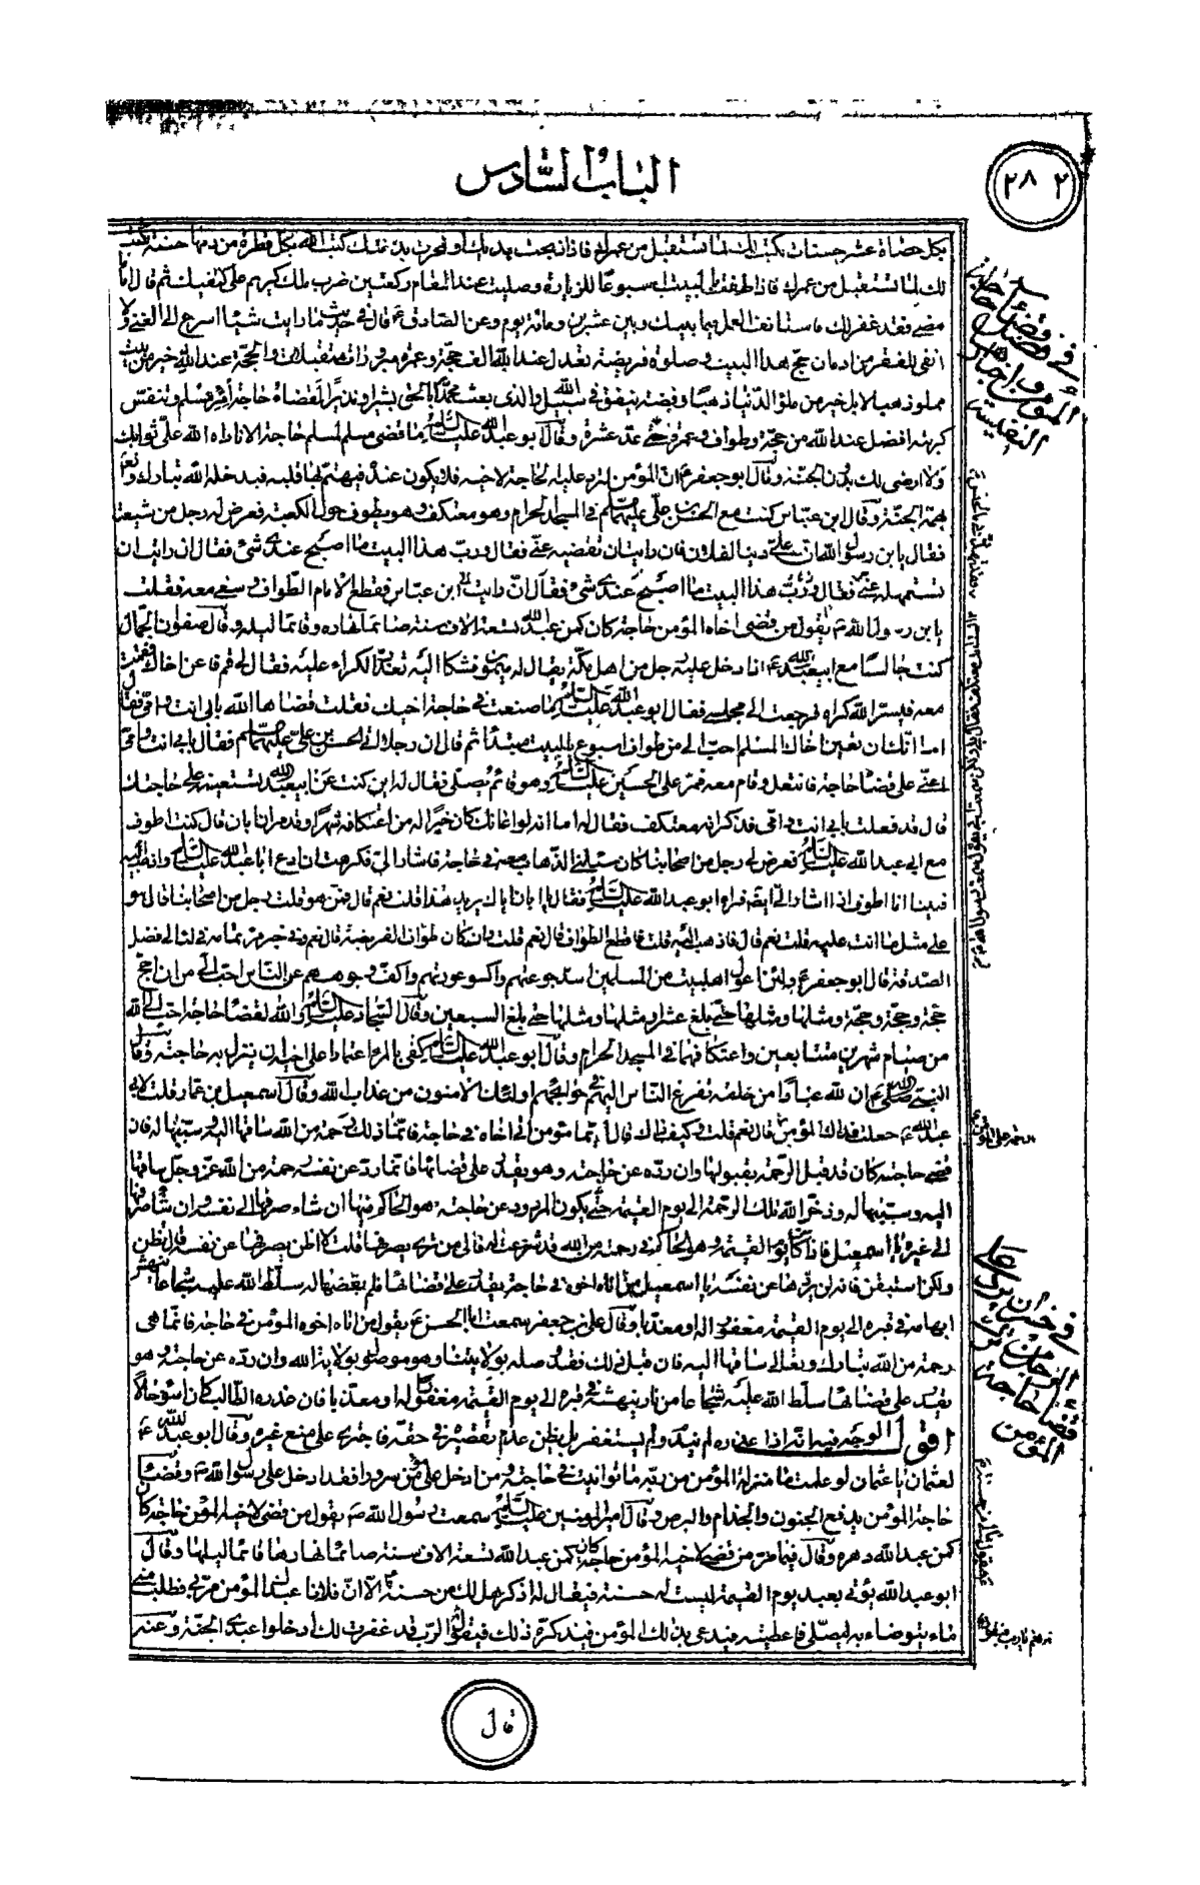 الباب السادس
٢٨٢
بكل حصاة عشر حسنات تكتب لك لما تستقبل من عمرك فاذا ذبحت هديك او نحرت بدنتك كتب الله بكل قطرة من دمها حسنة تكتب
لك لما تستقبل من عمرك فاذا طفت بالبيت اسبوعا للزيارة وصليت عند المقام ركعتين ضرب ملك كريم على كتفيك ثم قال اما
مضى فقد غفر لك فاستانف العمل فيما بينك وبين عشرين ومائة يوم وعن الصادق ع قال في حديث ما رايت شيئا اسرع الى الغنى ولا
انفى للفقر من ادمان حج هذا البيت وصلوة فريضة تعدل عند الله الف حجة وعمرة مبرورات متقبلات والحجة عند الله خير من بيت
مملو ذهبا لا بل خير من ملؤ الدنيا ذهبا وفضة ينفق في سبيل الله والذي بعث محمدا بالحق بشيرا ونذيرا لقضاء حاجة امرء مسلم وتنفيس
كربته افضل عند الله من حجة وطواف وعمرة حتى عد عشرة وقال ابو عبد الله عليه السلام ما قضى مسلم لمسلم حاجة الا ناداه الله علي ثوابك
ولا ارضى لك بدون الجنة وقال ابو جعفر ع ان المؤمن لترد عليه الحاجة لاخيه فلا يكون عنده فيهتم لها قلبه فيدخله الله تبارك وتعالى
بهمه الجنة وقال ابن عباس كنت مع الحسن بن علي عليهما السلام في المسجد الحرام وهو معتكف وهو يطوف حول الكعبة فعرض له رجل من شيعته
فقال يابن رسول الله ان علي دينا لفلان فان رايت ان تقضيه عني فقال ورب هذا البيت ما اصبح عندي شئ فقال ان رايت ان
تستمهله عني فقال ورب هذا البيت ما اصبح عندي شئ فقال ان رايت ابن عباس فقطع الامام الطواف وسعى معه فقلت
يابن رسول الله ص يقول من قضى اخاه المؤمن حاجة كان كمن عبد الله تسعة الاف سنة صائما نهاره وقائما ليله وقال صفوان الجمال
كنت جالسا مع ابيعبد الله ع اذ دخل عليه رجل من اهل مكة يقال له ميمون فشكا اليه تعذر الكراء عليه فقال لي قم فاعن اخاك فقمت
معه فيسر الله كراه فرجعت الى مجلسي فقال ابو عبد الله عليه السلام ما صنعت في حاجة اخيك فقلت قضاها الله بابي انت وامي فقال
اما انك ان تعين اخاك المسلم احب الي من طواف اسبوع بالبيت مبتدئا ثم قال ان رجلا اتى الحسن بن علي عليهما السلام فقال بابي انت وامي
اعني على قضاء حاجة فانتعل وقام معه فمر على الحسين عليه السلام وهو قائم يصلي فقال له اين كنت عن ابيعبد الله تستعينه على حاجتك
قال قد فعلت بابي انت وامي فذكر انه معتكف فقال له اما انه لو اعانك كان خيرا له من اعتكافه شهرا وقد مر ابان قال كنت اطوف
مع ابي عبد الله عليه السلام فعرض لي رجل من اصحابنا كان سئلني الذهاب معه في حاجة فاشار الي فكرهت ان ادع ابا عبد الله عليه السلام واذهب اليه
فبينا انا اطوف اذا اشار الي ايضا فراه ابو عبد الله عليه السلام فقال يا ابان اياك يريد هذا قلت نعم قال فمن هو قلت رجل من اصحابنا قال هو
على مثل ما انت عليه قلت نعم قال فاذهب اليه قلت فاقطع الطواف قال نعم قلت وان كان طواف الفريضة قال نعم في خبر مر تمامه في لئالي فضل
الصدقة قال ابو جعفر ع ولئن اعول اهلبيت من المسلمين اسد جوعتهم واكسو عورتهم واكف وجوههم عن الناس احب الي من ان احج
حجة وحجة وحجة ومثلها ومثلها حتى بلغ عشرا ومثلها ومثلها حتى بلغ السبعين وقال السجاد عليه السلام والله لقضاء حاجته احب الى الله
من صيام شهرين متتابعين واعتكافهما في المسجد الحرام وقال ابو عبد الله عليه السلام كفى بالمرء اعتمادا على اخيه ان ينزل به حاجته وقال
النبي صلى الله ان لله عبادا من خلقه تفزع الناس اليهم في حوائجهم اولئك الامنون من عذاب الله وقال اسمعيل بن عمار قلت لابي
عبد الله ع جعلت فداك المؤمن رحمة قال نعم قلت وكيف ذلك قال ايما مؤمن اتى اخاه في حاجة فانما ذلك رحمة من الله ساقها اليه وسببها له فان
قضى حاجته كان قد قبل الرحمة بقبولها وان رده عن حاجته وهو يقدر على قضائها فانما رد عن نفسه رحمة من الله عز وجل ساقها
اليه وسببها له وذخر الله تلك الرحمة الى يوم القيمة حتى يكون المردود عن حاجته هو الحاكم فيها ان شاء صرفها الى نفسه وان شاء صرفها
الى غيره يا اسمعيل فاذا كان يوم القيمة وهو الحاكم في رحمة من الله قد شرعت له فالى من ترى يصرفها قلت لا اظن يصرفها عن نفسه قال لا تظن
ولكن استيقن فانه لن يردها عن نفسه يا اسمعيل من اتاه اخوه في حاجة يقدر على قضائها فلم يقضها له سلط الله عليه شجاعا ينهش
ابهامه في قبره الى يوم القيمة مغفورا له او معذبا وقال علي بن جعفر سمعت ابا الحسن ع يقول من اتاه اخوه المؤمن في حاجة فانما هي
رحمة من الله تبارك وتعالى ساقها اليه فان قبل ذلك فقد وصله بولايتنا وهو موصول بولاية الله وان رده عن حاجته وهو
يقدر على قضائها سلط الله عليه شجاعا من نار ينهشه في قبره الى يوم القيمة مغفورا له او معذبا فان عذره الطالب كان اسوء حالا
اقول الوجه فيه انه اذا عذره لم يندم ولم يستغفر بل يظن عدم تقصيره في حقه فاجترى على منع غيره وقال ابو عبد الله ع
لعثمان يا عثمان لو علمت ما منزلة المؤمن من ربه ما توانيت في حاجته ومن ادخل على مؤمن سرورا فقد ادخل على رسول الله ص وقضاء
حاجة المؤمن يدفع الجنون والجذام والبرص وقال امير المؤمنين عليه السلام سمعت رسول الله ص يقول من قضى لاخيه المؤمن حاجة كان
كمن عبد الله دهره وقال فيما مر من قضى لاخيه المؤمن حاجة كان كمن عبد الله تسعة الاف سنة صائما نهارها قائما ليلها وقال
ابو عبد الله يؤتى بعبد يوم القيمة ليست له حسنة فيقال له اذكر هل لك من حسنة الا ان فلانا عبدك المؤمن مر بي فطلب مني
ماء يتوضاء به ليصلي فاعطيته فيدعى بذلك المؤمن فيذكره ذلك فيقول الرب قد غفرت لك ادخلوا عبدي الجنة وعنه
في فضل قضاء حاجة
المؤمن
في خسران من
قضاء حاجة
المؤمن
قال